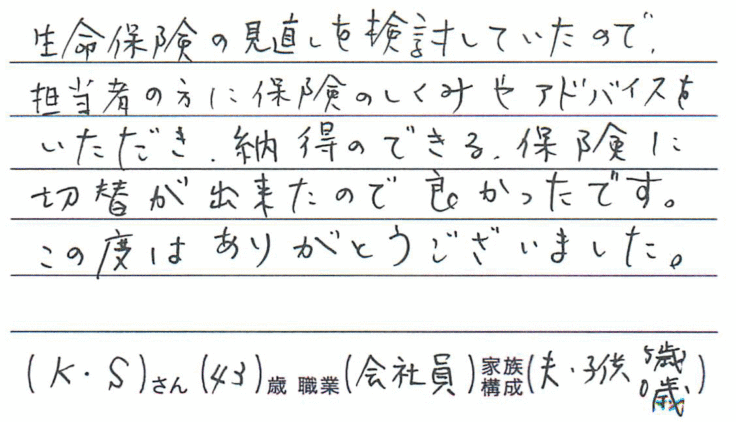 生命保険の見直しを検討していたので、
担当者の方に保険のしくみやアドバイスを
いただき、納得のできる、保険に
切替が出来たので良かったです。
この度はありがとうございました。
(K・S)さん(43)歳 職業(会社員)家族構成(夫・子供 5歳 0歳)